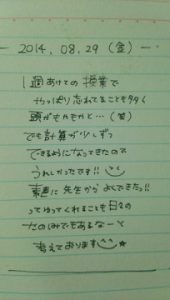 2014. 08. 29 (金)
1週あけての授業で
やっぱり忘れてることも多く
頭がもやもやと… (笑)
でも計算が少しずつ
できるようになってきたので
うれしかったです!!
素直に先生から よくできたっ!!
ってゆってくれることも日々の
たのしみでもあるなーと
考えております